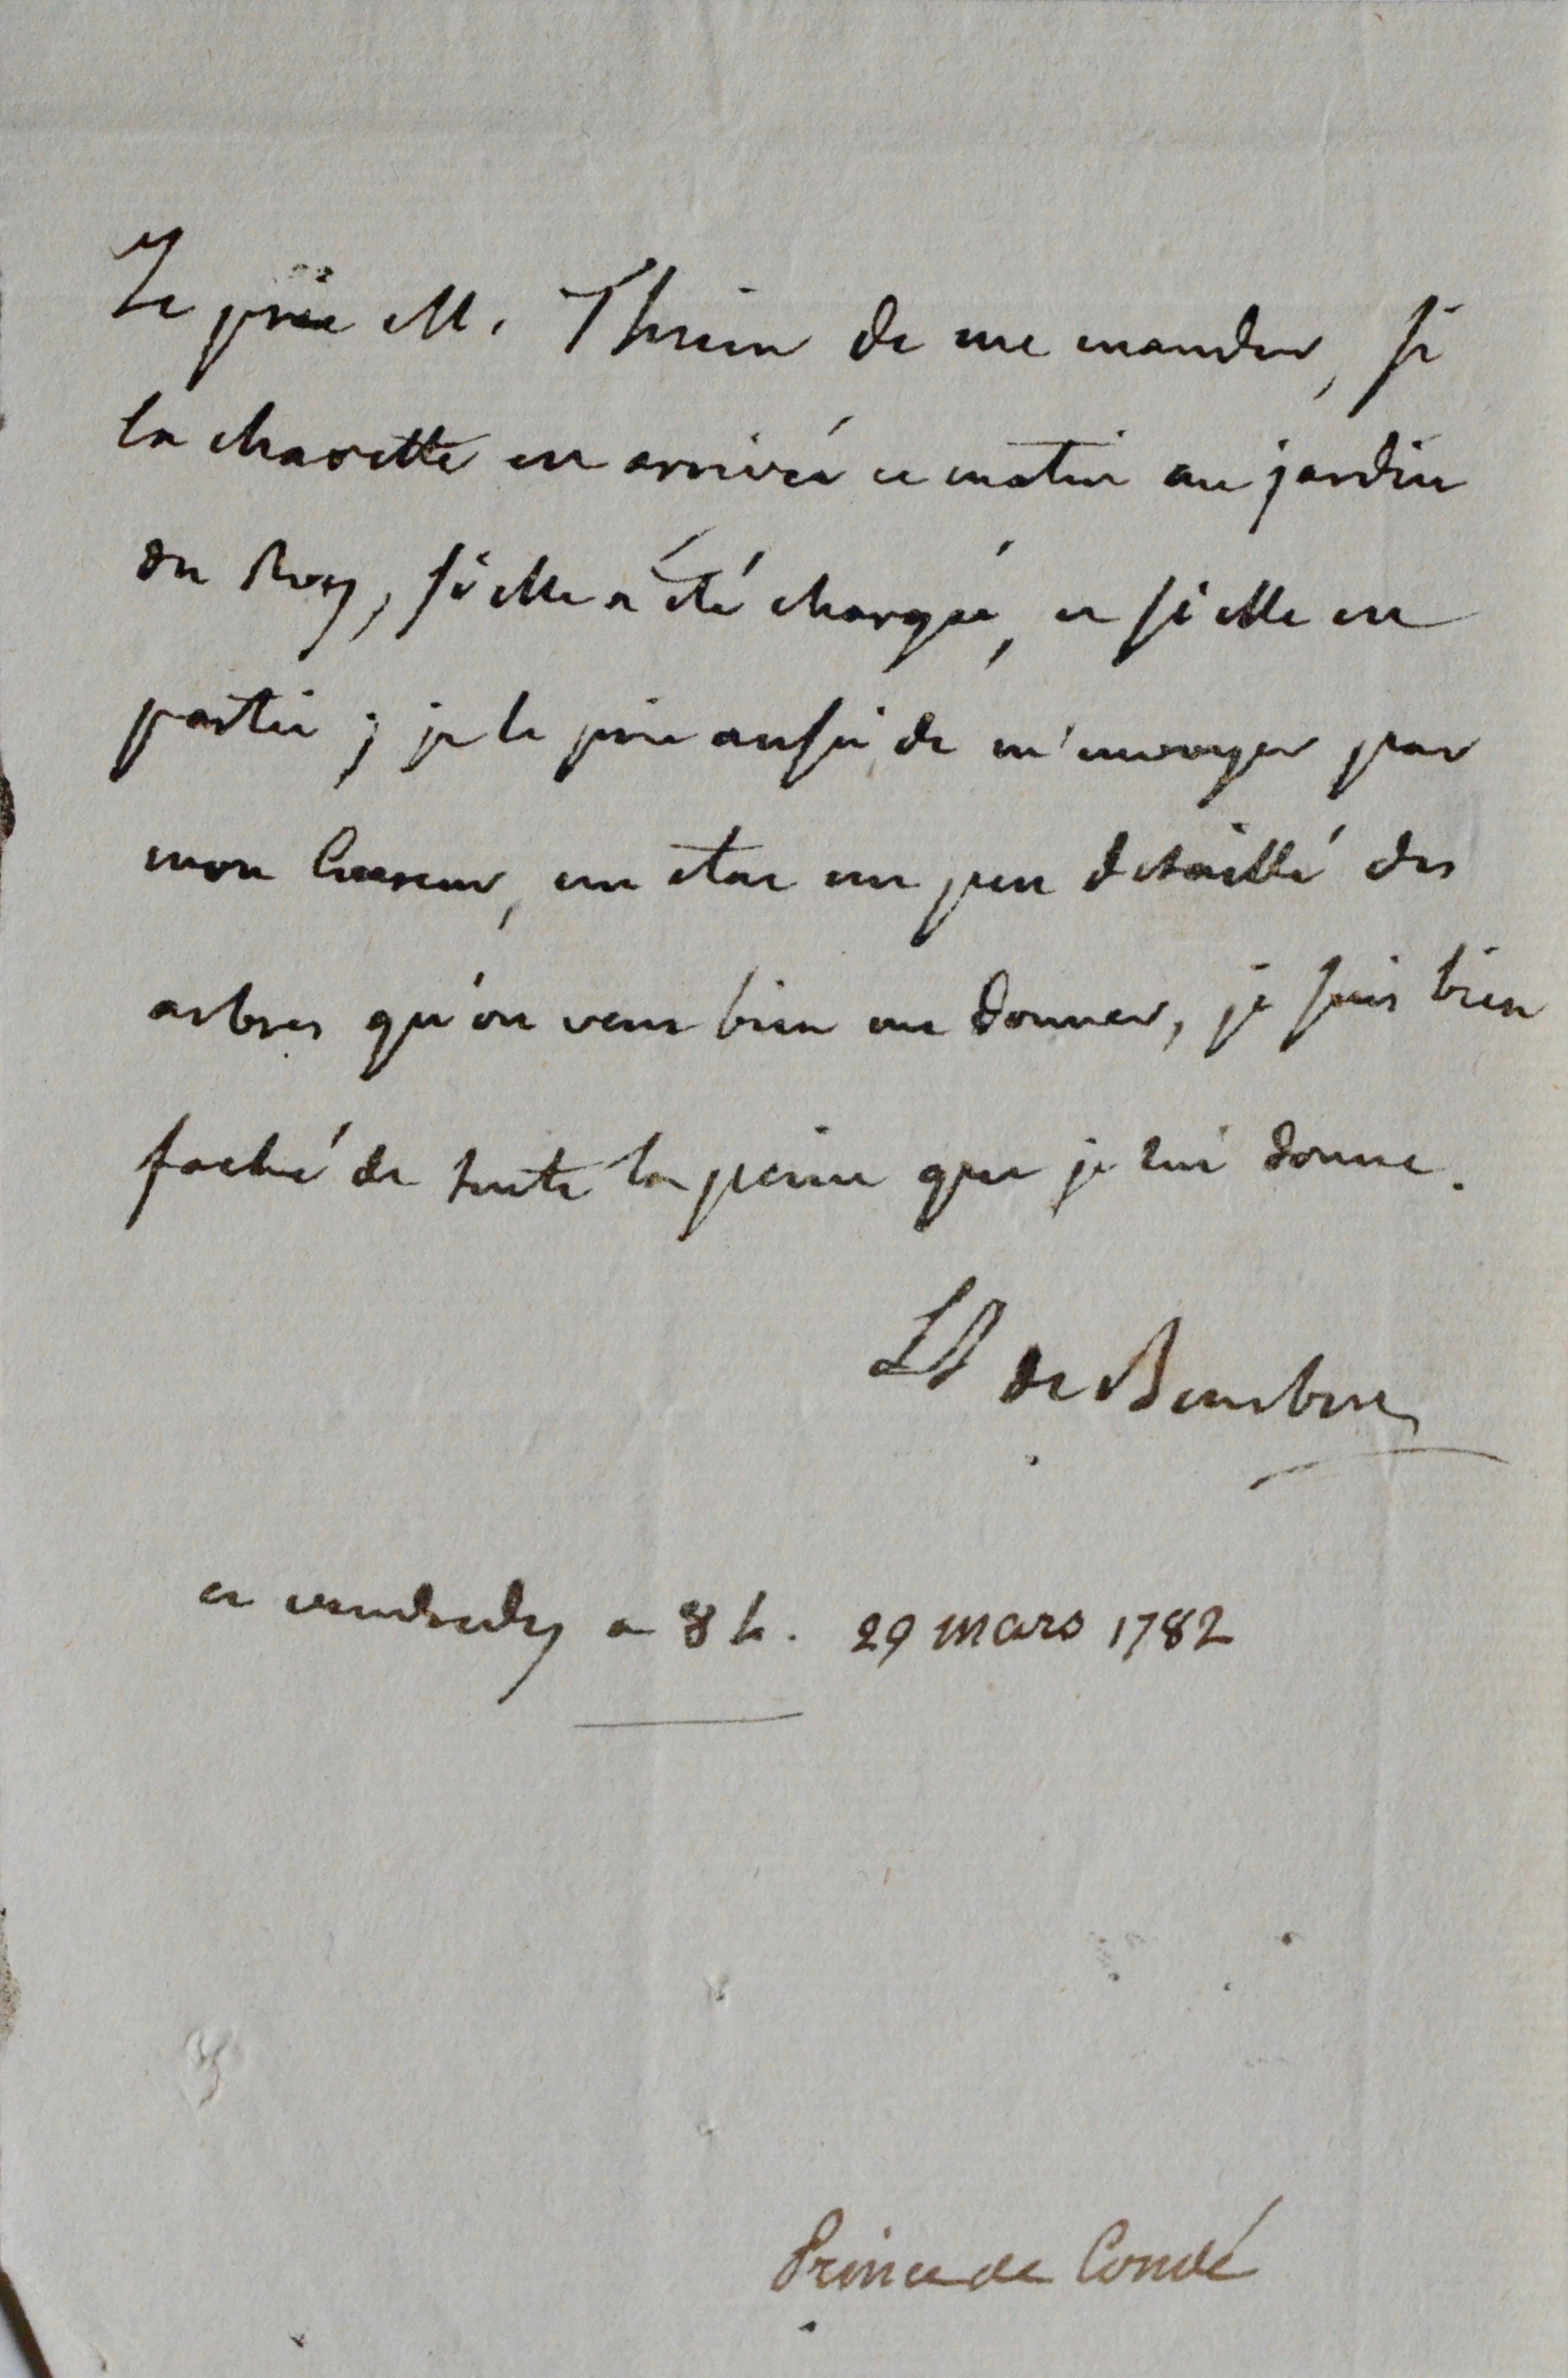 Je prie M. Thouin de me mander, si
la charette est arrivée ce matin au jardin
du Roy, si elle a été chargée, et si elle est
partie ; je le prie aussi de m'envoyer par
mon Coureur, un etat un peu detaillé des
arbres qu'on veut bien me donner, je suis bien
faché de toute la peine que je lui donne.
LJ de Bourbon
ce vendredy a 8 h. 29 mars 1782
Prince de Condé